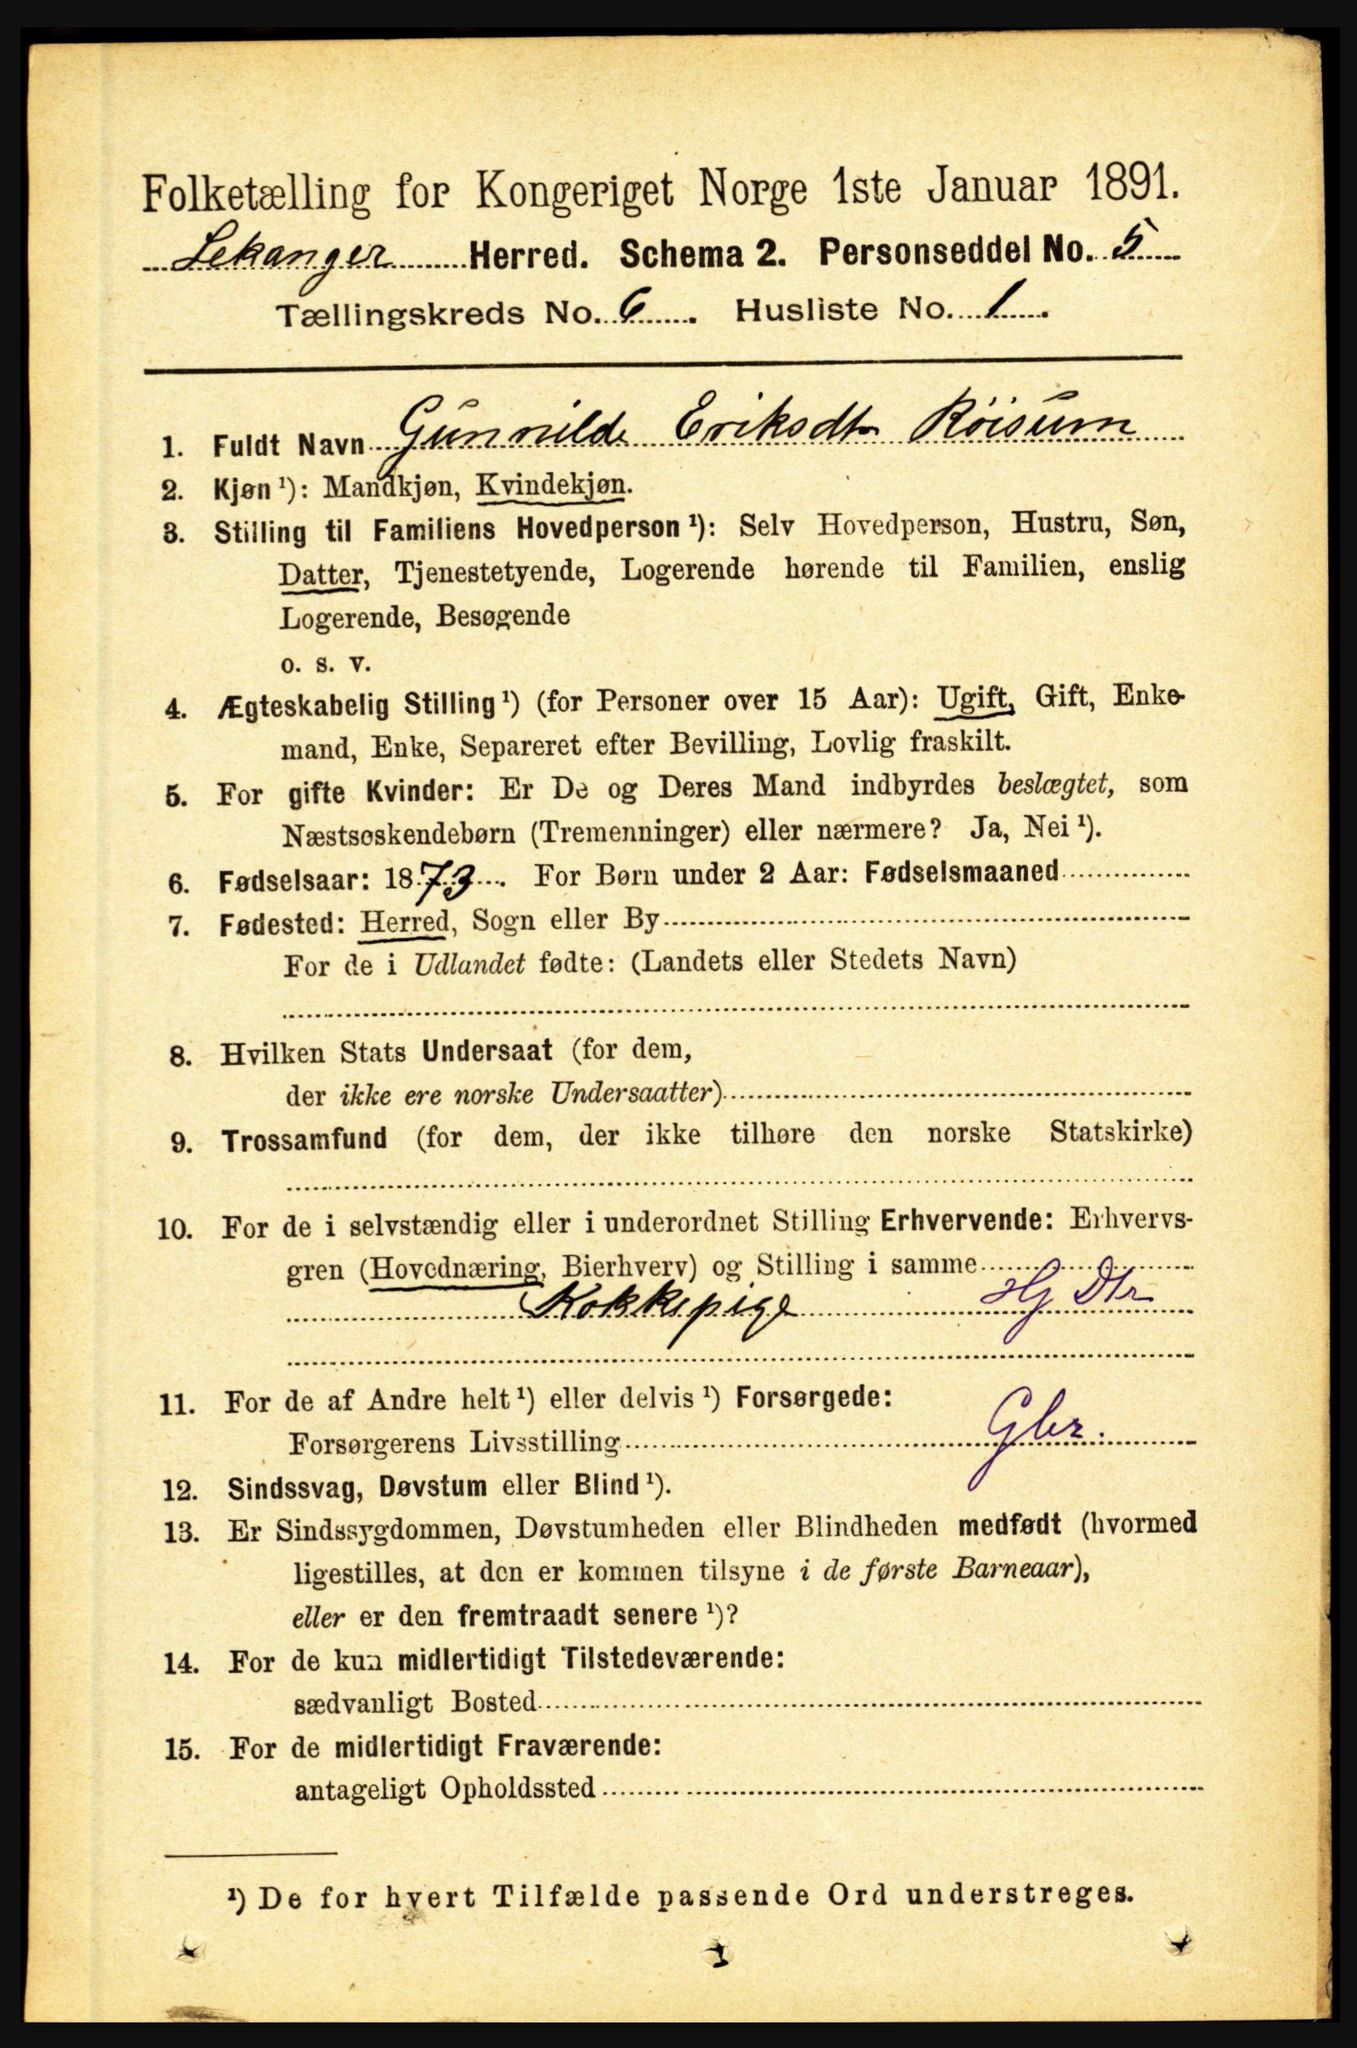 Folketælling for Kongeriget Norge 1ste Januar 1891.
Lekanger Herred. Schema 2. Personseddel No. 5
Tællingskreds No. 6. Husliste No. 1.
1. Fuldt Navn Gunnilde Eriksdtr Röisum
2. Kjøn ¹): Mandkjøn, Kvindekjøn.
3. Stilling til Familiens Hovedperson ¹): Selv Hovedperson, Hustru, Søn,
Datter, Tjenestetyende, Logerende hørende til Familien, enslig
Logerende, Besøgende
o. s. v.
4. Ægteskabelig Stilling ¹) (for Personer over 15 Aar): Ugift, Gift, Enke-
mand, Enke, Separeret efter Bevilling, Lovlig fraskilt.
5. For gifte Kvinder: Er De og Deres Mand indbyrdes beslægtet, som
Næstsøskendebørn (Tremenninger) eller nærmere? Ja, Nei ¹).
6. Fødselsaar: 1873. For Børn under 2 Aar: Fødselsmaaned
7. Fødested: Herred, Sogn eller By
For de i Udlandet fødte: (Landets eller Stedets Navn)
8. Hvilken Stats Undersaat (for dem,
der ikke ere norske Undersaatter)
9. Trossamfund (for dem, der ikke tilhøre den norske Statskirke)
10. For de i selvstændig eller i underordnet Stilling Erhvervende: Erhvervs-
gren (Hovednæring, Bierhverv) og Stilling i samme
Kokkepige HG Dtr
11. For de af Andre helt ¹) eller delvis ¹) Forsørgede:
Forsørgerens Livsstilling Gbr.
12. Sindssvag, Døvstum eller Blind ¹).
13. Er Sindssygdommen, Døvstumheden eller Blindheden medfødt (hvormed
ligestilles, at den er kommen tilsyne i de første Barneaar),
eller er den fremtraadt senere ¹)?
14. For de kun midlertidigt Tilstedeværende:
sædvanligt Bosted
15. For de midlertidigt Fraværende:
antageligt Opholdssted
¹) De for hvert Tilfælde passende Ord understreges.